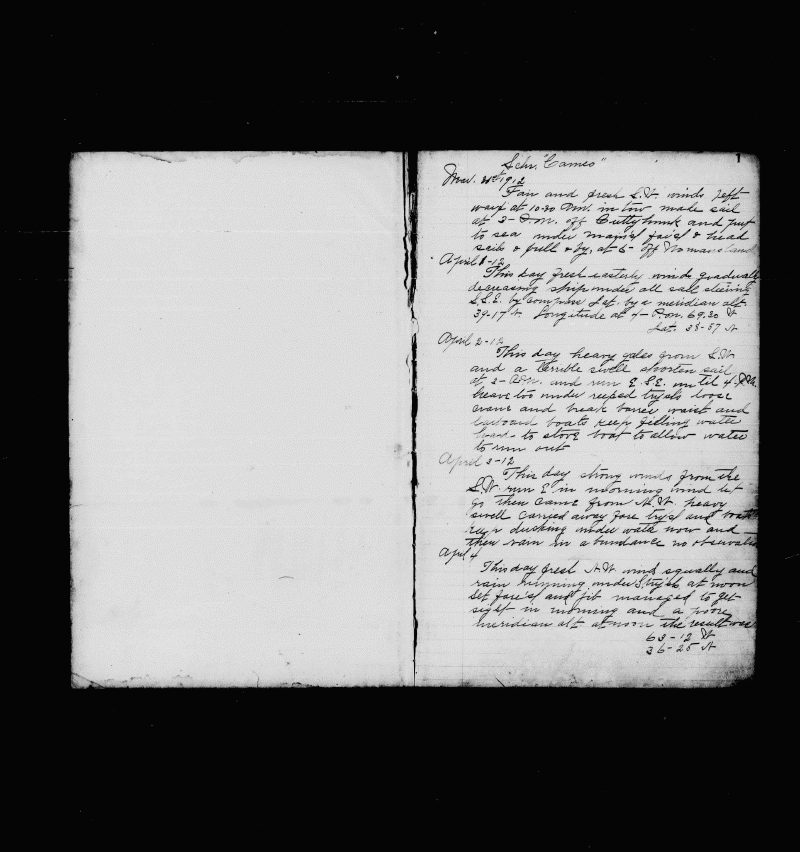 1
Schr. "Cameo"
Mar. 31st 1912
Fair and fresh S.W. winds left
warf at 10.30 A.M. in tow make sail
at 3- P.M. off Cuttyhunk and put
to sea under mains'l fors'l & head
sails & full & by, at 5- off Nomansland
April 1-12
This day fresh easterly winds gradually
decreasing ship under all sail steering
S.S.E. by compass Lat. by a meridian alt.
39-17 N. Longitude at 4- P.M. 69.30 W
Lat. 38-57 N
April 2-12
This day heavy gales from S.W.
and a terrible swell shorten sail
at 2- A.M. and run E.S.E. until 4 P.M.
heave too under reefed trysls loose
crane and break waist and
larboard boats keep filling water
had to stove boat to allow water
to run out
April 3-12
This day strong winds from the
S.W. run E in morning wind let
go then came from N.W. heavy
swell carried away fore trys'l and boats
keep ducking under water now and
then rain in abundance no observation
April 4
This day fresh N.W. wind squally and
rain running under trysls at noon
set fore's'l and jib managed to get
sight in morning and a poor
meridian alt at noon the result was
63-12 W
36-25 N